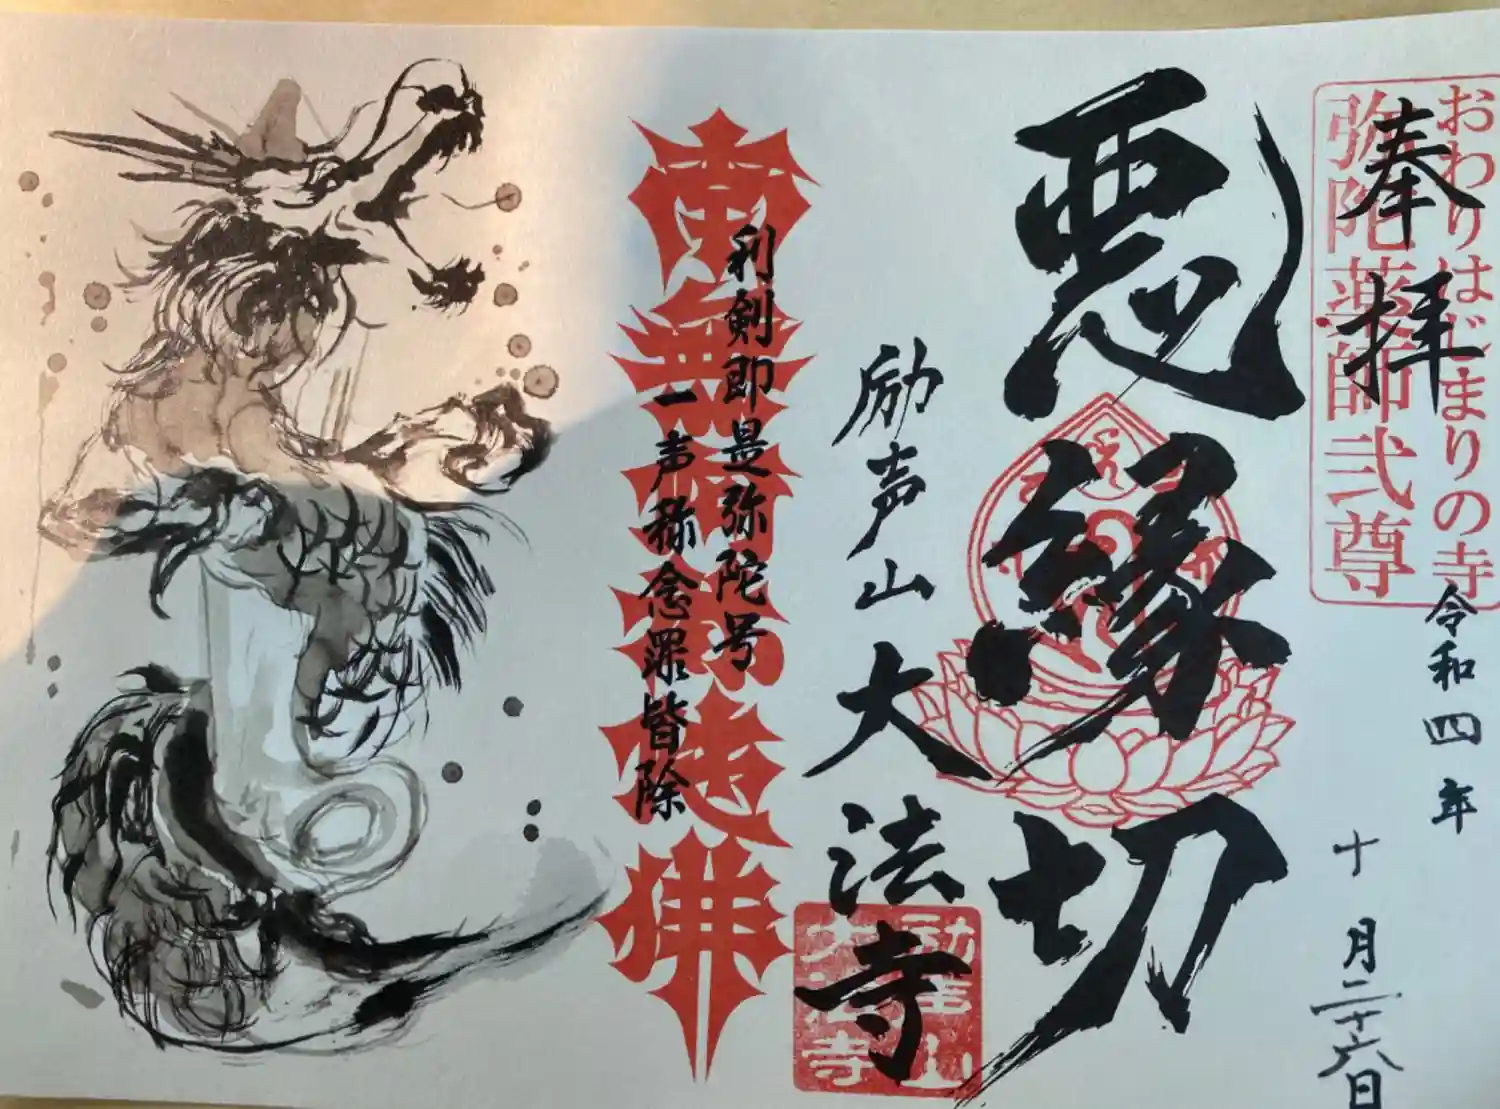 奉拝
おわりはじまりの寺
弥陀薬師弐尊
令和四年
十月二十六日
悪縁切
励声山
大法寺
励声山
大法寺
利剣即是弥陀号
一声称念罪皆除
南無阿弥陀佛